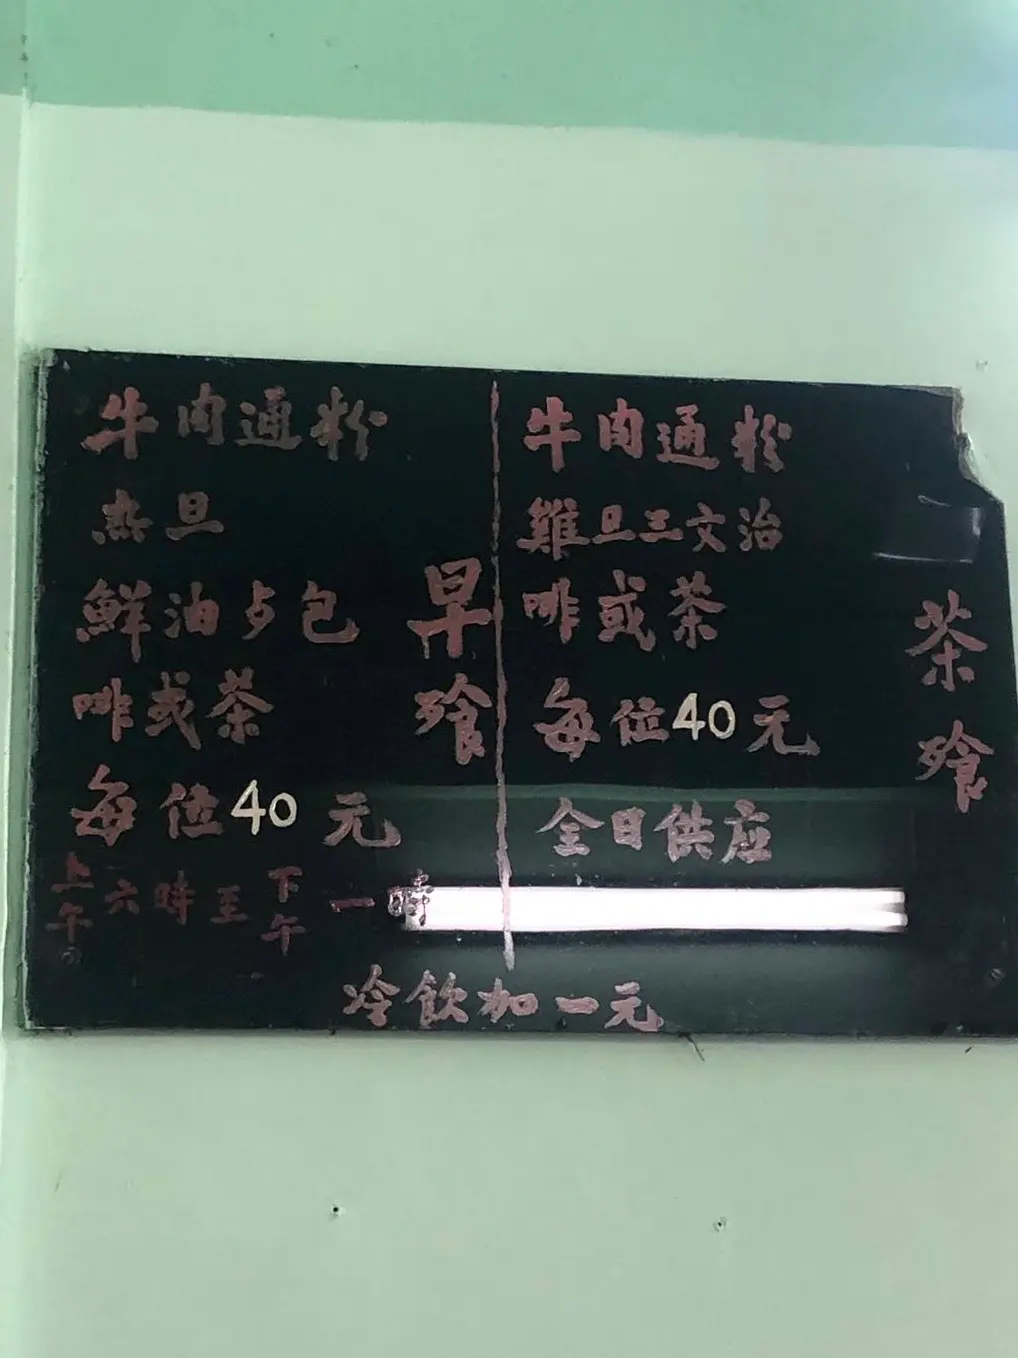 牛肉通粉
热旦
鮮油占包
啡或茶
每位40元
上午六時至下午一時
早飡
牛肉通粉
雞旦三文治
啡或茶
每位40元
全日供应
茶飡
冷飲加一元